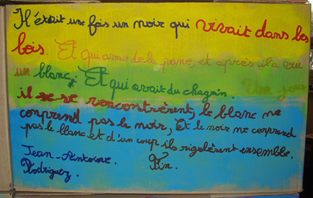 Il était une fois un noir qui vivait dans les
bois. Et qui avait de la peine, et après il a vu
un blanc; Et qui avait du chagrin. Un jour
il se rencontrèrent, le blanc ne
comprend pas le noir, Et le noir ne comprend
pas le blanc et d'un coup ils rigolèrent ensemble.
Jean-Antoine Fin.
Rodriguez.